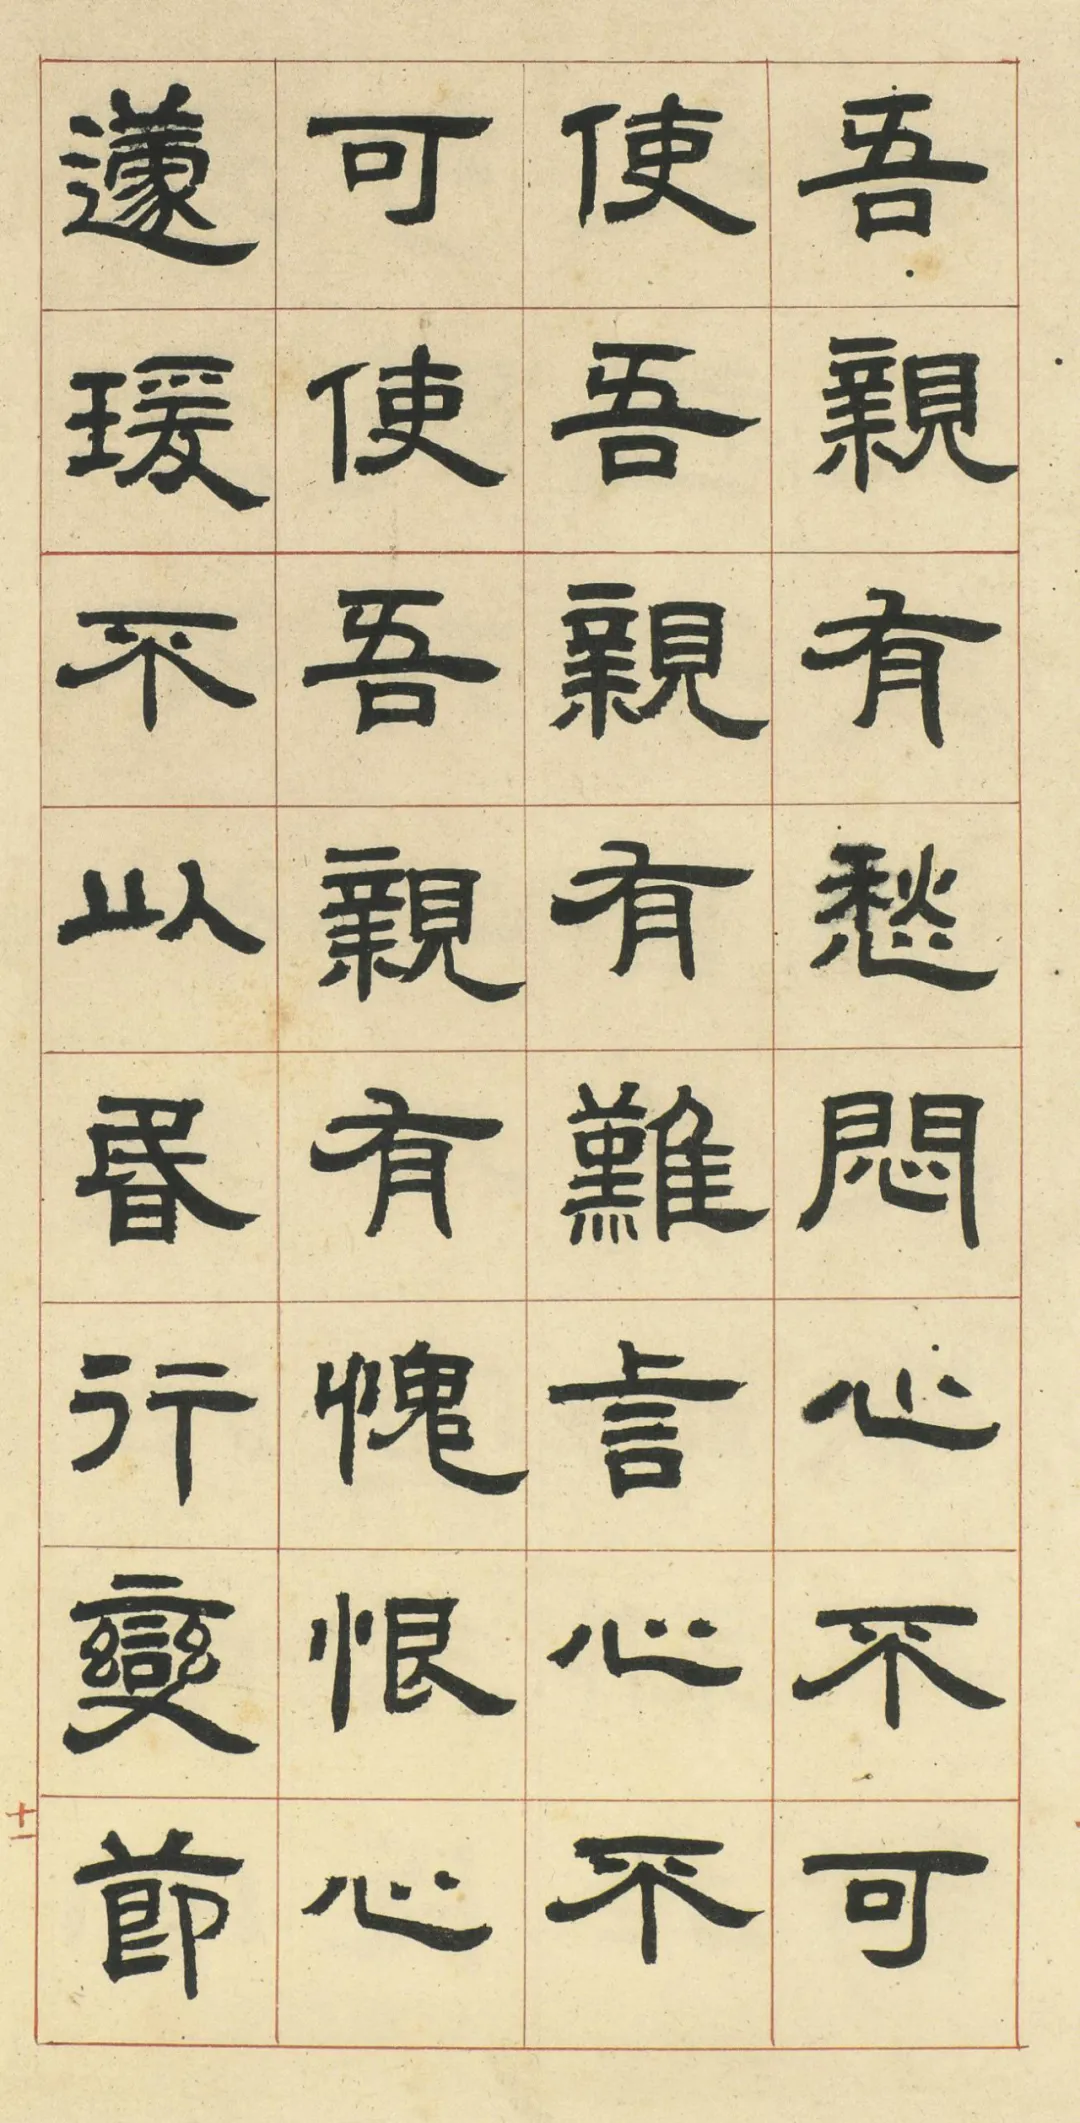 吾親有愁悶心不可
使吾親有難言心不
可使吾親有愧恨心
蘧瑗不以昏行變節
十二